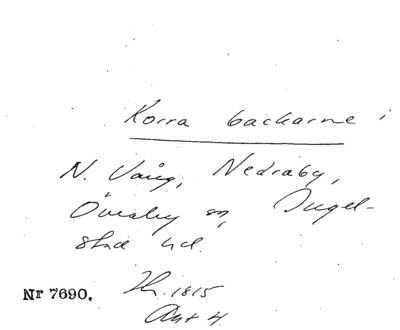 Korra backarne i
N. Vång, Nedraby,
Övraby sn, Ingel-
stad hd.
Nr 7690.
1815
Akt 4.